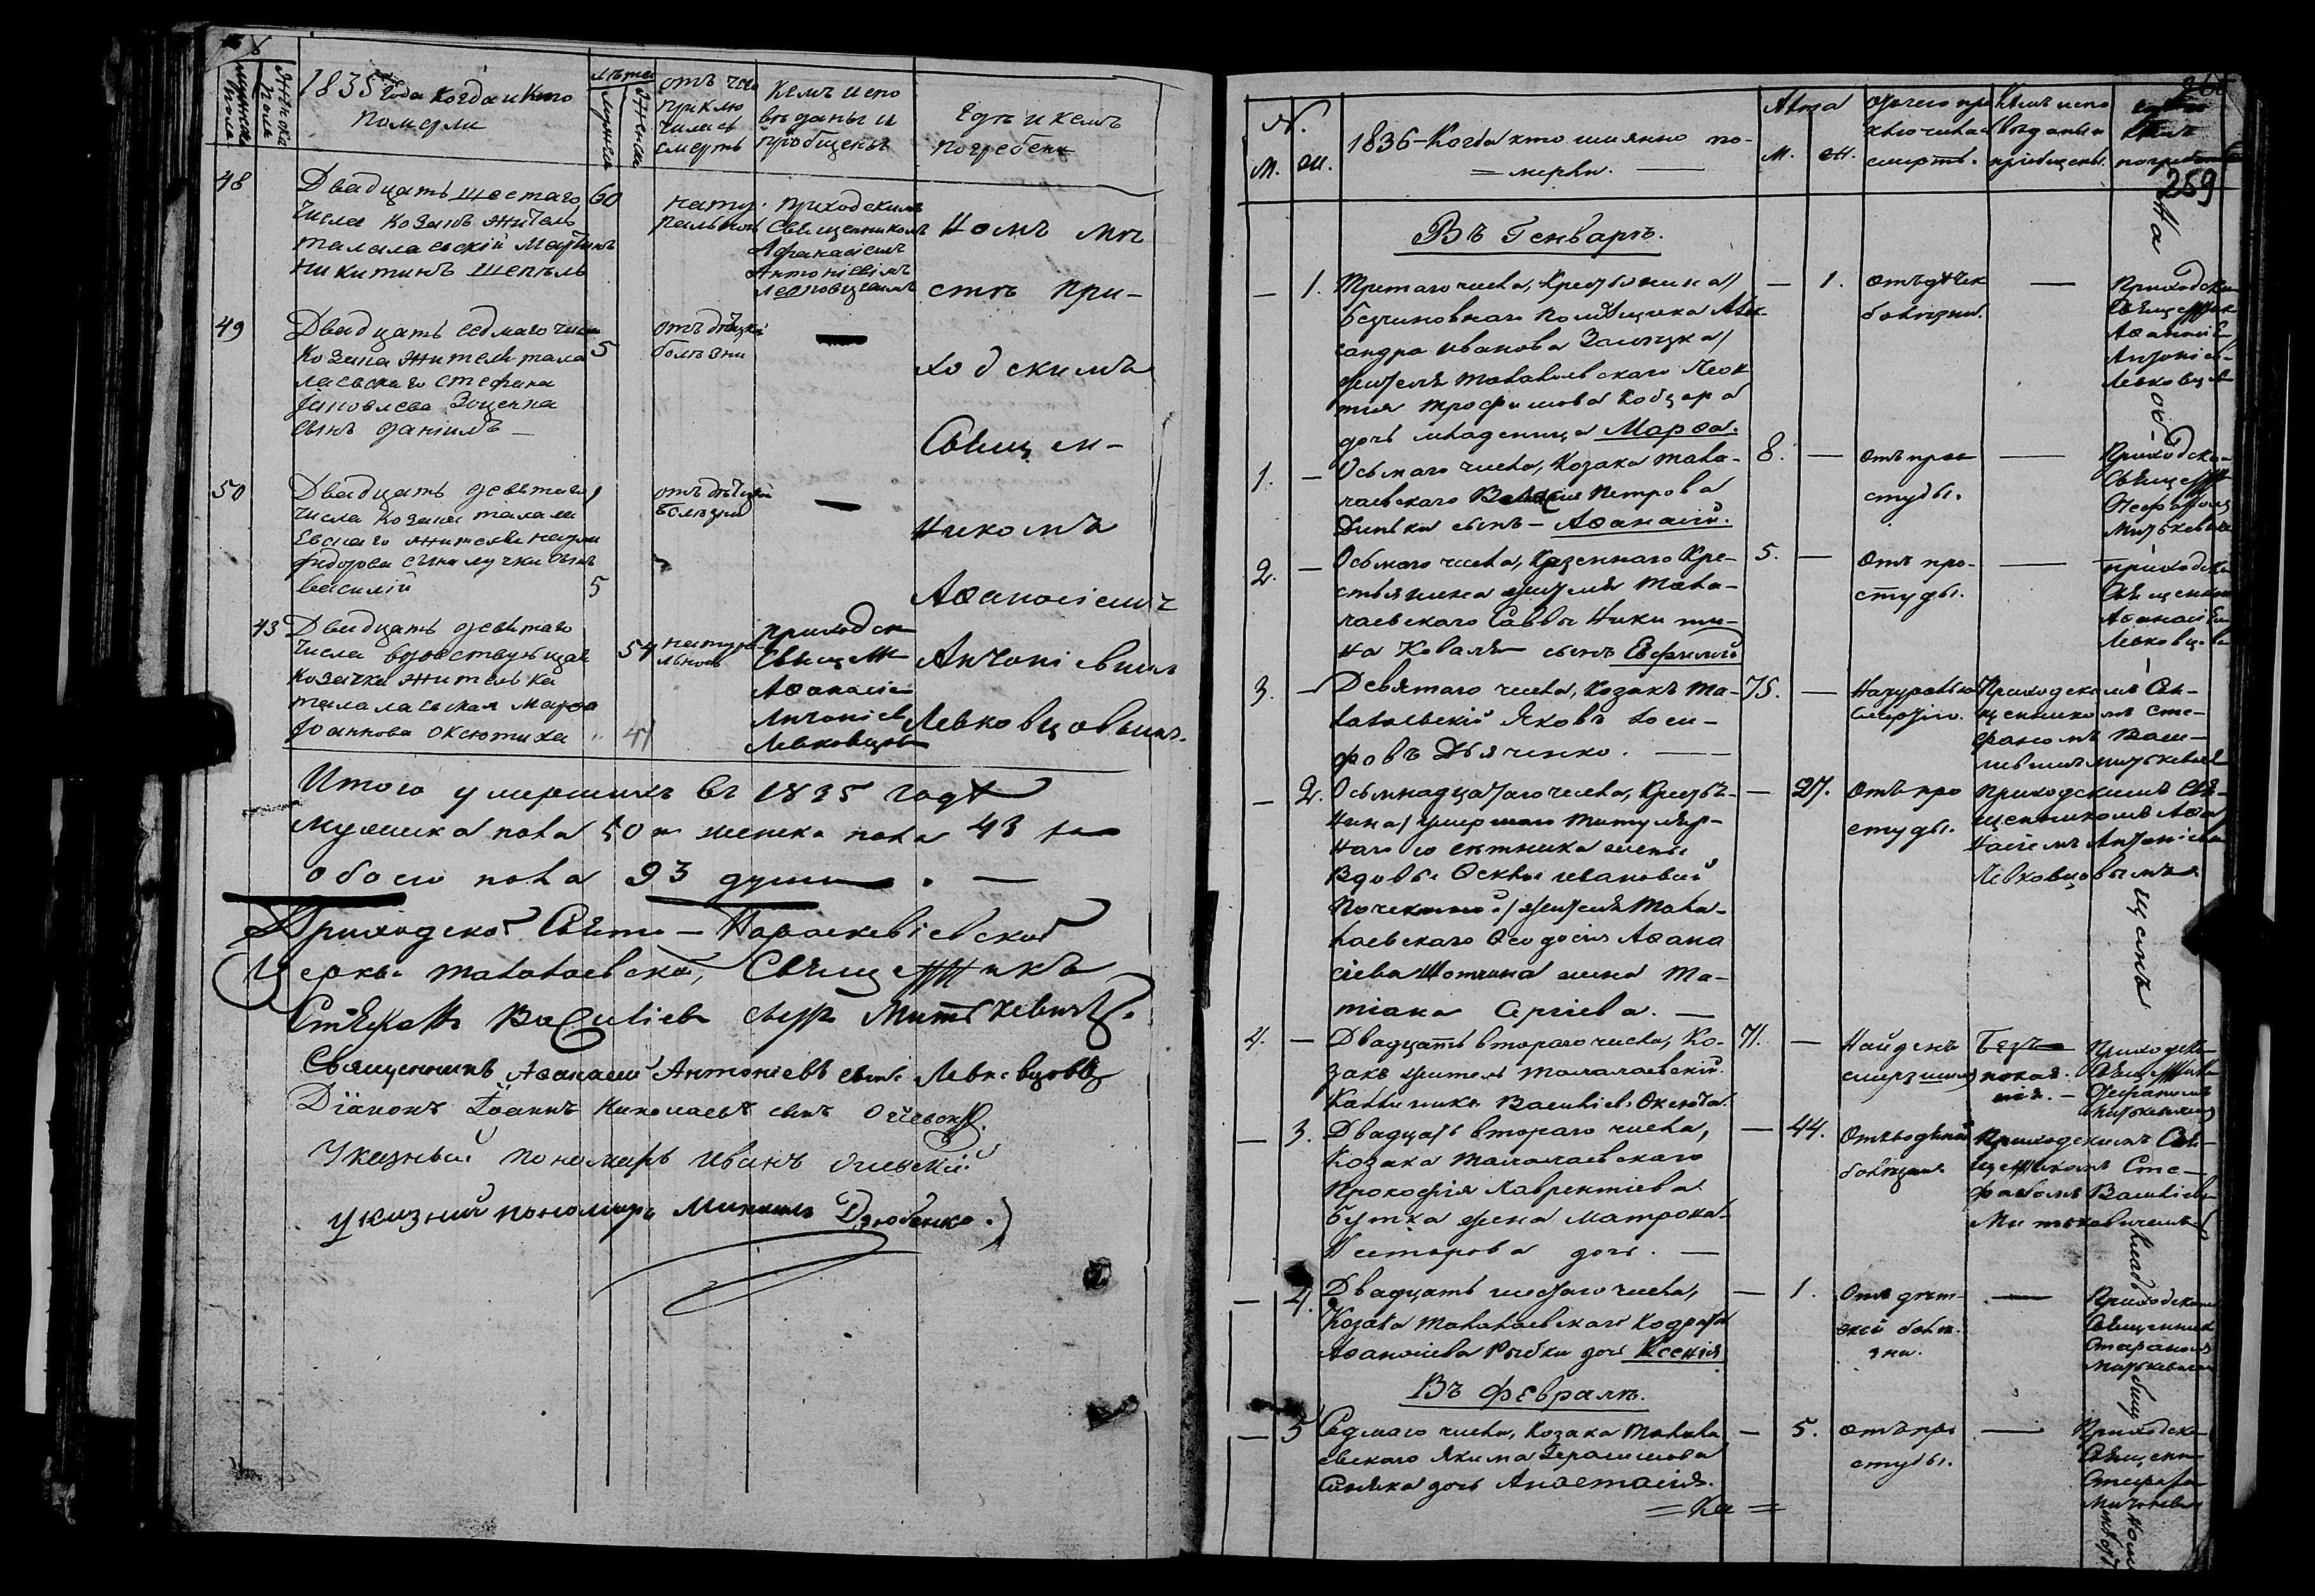 мужеска пола
женска пола
1835 года когда и кто
померли
лета
мужеска
женска
отъ чего
приклю
чилась
смерть
Кемъ испо
веданы и
пріобщены
Где и кемъ
погребены
48
Двадцать шестаго
числа козакъ житель
талалаевскій Мартинъ
Никитинъ Шепель
60
натур
ральной
приходскимъ
Священникомъ
Афанасіемъ
Антоніевымъ
Левковцовимъ
49
Двадцать седмаго числа
козака жителя тала
лаевскаго Стефана
Яковлева Зоценка
сынъ Даніилъ —
5
отъ детской
болезни
50
Двадцать девятаго
числа козака талала
евскаго жителя
Федорова сына Лучки сынъ
Василій
5
отъ детской
болезни
43
Двадцать девятаго
числа вдовствующая
козачка жителька
талалаевская Марфа
Іоаннова Оксютиха
54
натура
льной
приходск
Свящеж
Афанасіе
Антоніев
Левковцов
41
номъ ме
сте при-
ходскимъ
Свящ ен-
никомъ
Афанасіемъ
Антоніевимъ
Левковцовымъ.
Итого умершихъ въ 1835 годе
мужеска пола 50 и женска пола 43 а
обоего пола 93 души. —
Приходской Свято-Параскевіевской
Церкви талалаевской, Священникъ
Стефанъ Василіевъ сынъ Митькевичъ.
Священникъ Афанасій Антоніевъ сынъ Левковцовъ
Діаконъ Іоаннъ Николаевъ сынъ Огіевскій.
Указный пономарь Иванъ Огіевскій
указний пономарь Михаилъ Дзюбенко.
260
259
№.
М.
Ж.
1836 — Когда кто имянно по-
= мерли. —
Лета
М.
Ж.
Отъ чего при
ключилась
смерть.
Кемъ испо
веданы и
пріобщены.
кемъ
погребены
Въ Генваре.
— 1.
Третаго числа, Крестьянина
безчиновнаго помещика Алек-
сандра Иванова
жителя талалаевскаго Леон
тія Трофимова Кобзаря
дочь младеница Марфа.
— 1.
отъ детск
болезни.
—
Приходски
Священник
Афанасіе
Антоніев-
Левковцов
1. —
Осьмаго числа, Козака тала-
лаевскаго Василія Петрова
сынъ — Афанасій.
8. —
отъ прос
студы.
—
Приходски-
Священ
Стефаном
Митькевич
2. —
Осьмаго числа, Казеннаго Кре-
стьянина жителя тала-
лаевскаго Саввы Ники ти-
на Коваля сынъ Ефимій
5. —
Отъ про-
студы.
—
приходски
Священник
Афанасіем
Левковцов
3. —
Девятаго числа, Козакъ та-
лалаевскій Яковъ Іоси-
фовъ Дьяченко. —
75. —
Натуральною
смертію.
Приходскимъ Свя-
щенникомъ Сте-
фаномъ Васи-
ліевимъ Митькевичем
— 2.
Осьмнадцатаго числа, Крестья-
нина умершаго титуляр-
наго советника жены
Вдовы Феклы Ивановой
жителя тала-
лаевскаго Феодосія Афана
сіева Шотлика жена та-
тіана Сергіева. —
— 27.
отъ про
студы.
приходскимъ Свя-
щенникомъ Афа
насіемъ Антоніевы
Левковцовымъ
4. —
Двадцать втораго числа, Ко-
закъ житель талалаевскій
Каллиникъ Василіевъ Оксюта.
71. —
Найденъ
мерзшимъ
безъ
покая
нія. —
Приходски
Священник
Стефаномъ
Митькевичем
— 3.
Двадцать втораго числа,
Козака талалаевскаго
Прокофія Лаврентіева
Бутка жена Матрона
Несторова дочь. —
— 44.
Отъ водяной
болезни
Приходскимъ Свя-
щенникомъ Сте-
фаномъ Василіевы
Митькевичемъ
— 4.
Двадцать шестаго числа,
Козака талалаевскаго Кодрата
Афанасіева Рыбки дочь Ксенія
— 1.
Отъ дет-
ской боле-
зни.
—
Приходским
Священник
Стефаномъ
Митькевичем
Въ Феврале.
— 5
Седмаго числа, Козака талала
евскаго Якима Герасимова
Синяка дочь Анастасія.
— 5.
отъ про
студы.
—
Приходски
Священ
Стефано
Митькев
На
об-
щемъ
клад
бищ
= На =